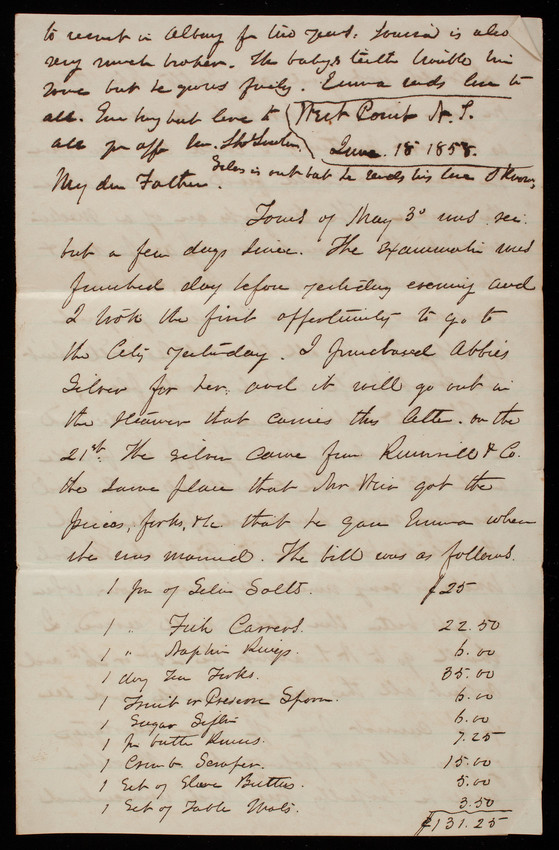 to recruit in Albany for two years. Louisa is also
very much broken. The baby's teeth trouble him
some but he grows finely. Emma sends love to
all. Em boy but love to
all yr aff son. Thos Lincoln
West Point N.Y.
June 18 1858.
Giles is out but he sends his love I know
My dear Father.
Yours of May 3d was rec.
but a few days since. The examination was
finished day before yesterday evening and
I took the first opportunity to go to
the City yesterday. I purchased Abbies
Silver for her, and it will go out in
the steamer that carries this letter on the
21st. The silver came from Rumrill & Co.
the same place that Mr Weir got the
pieces, forks, &c that he gave Emma when
she was married. The bill was as follows.
1 pr of Silver Salts. $25
1 " Fish Carvers. 22.50
1 " Napkin Rings. 6.00
1 doz Tea Forks. 35.00
1 Fruit or Preserve Spoon. 6.00
1 Sugar Sifter 6.00
1 pr butter Knives. 7.25
1 Crumb Scraper. 15.00
1 Set of Sleeve Buttons. 5.00
1 Set of Table Mats. 3.50
$131.25